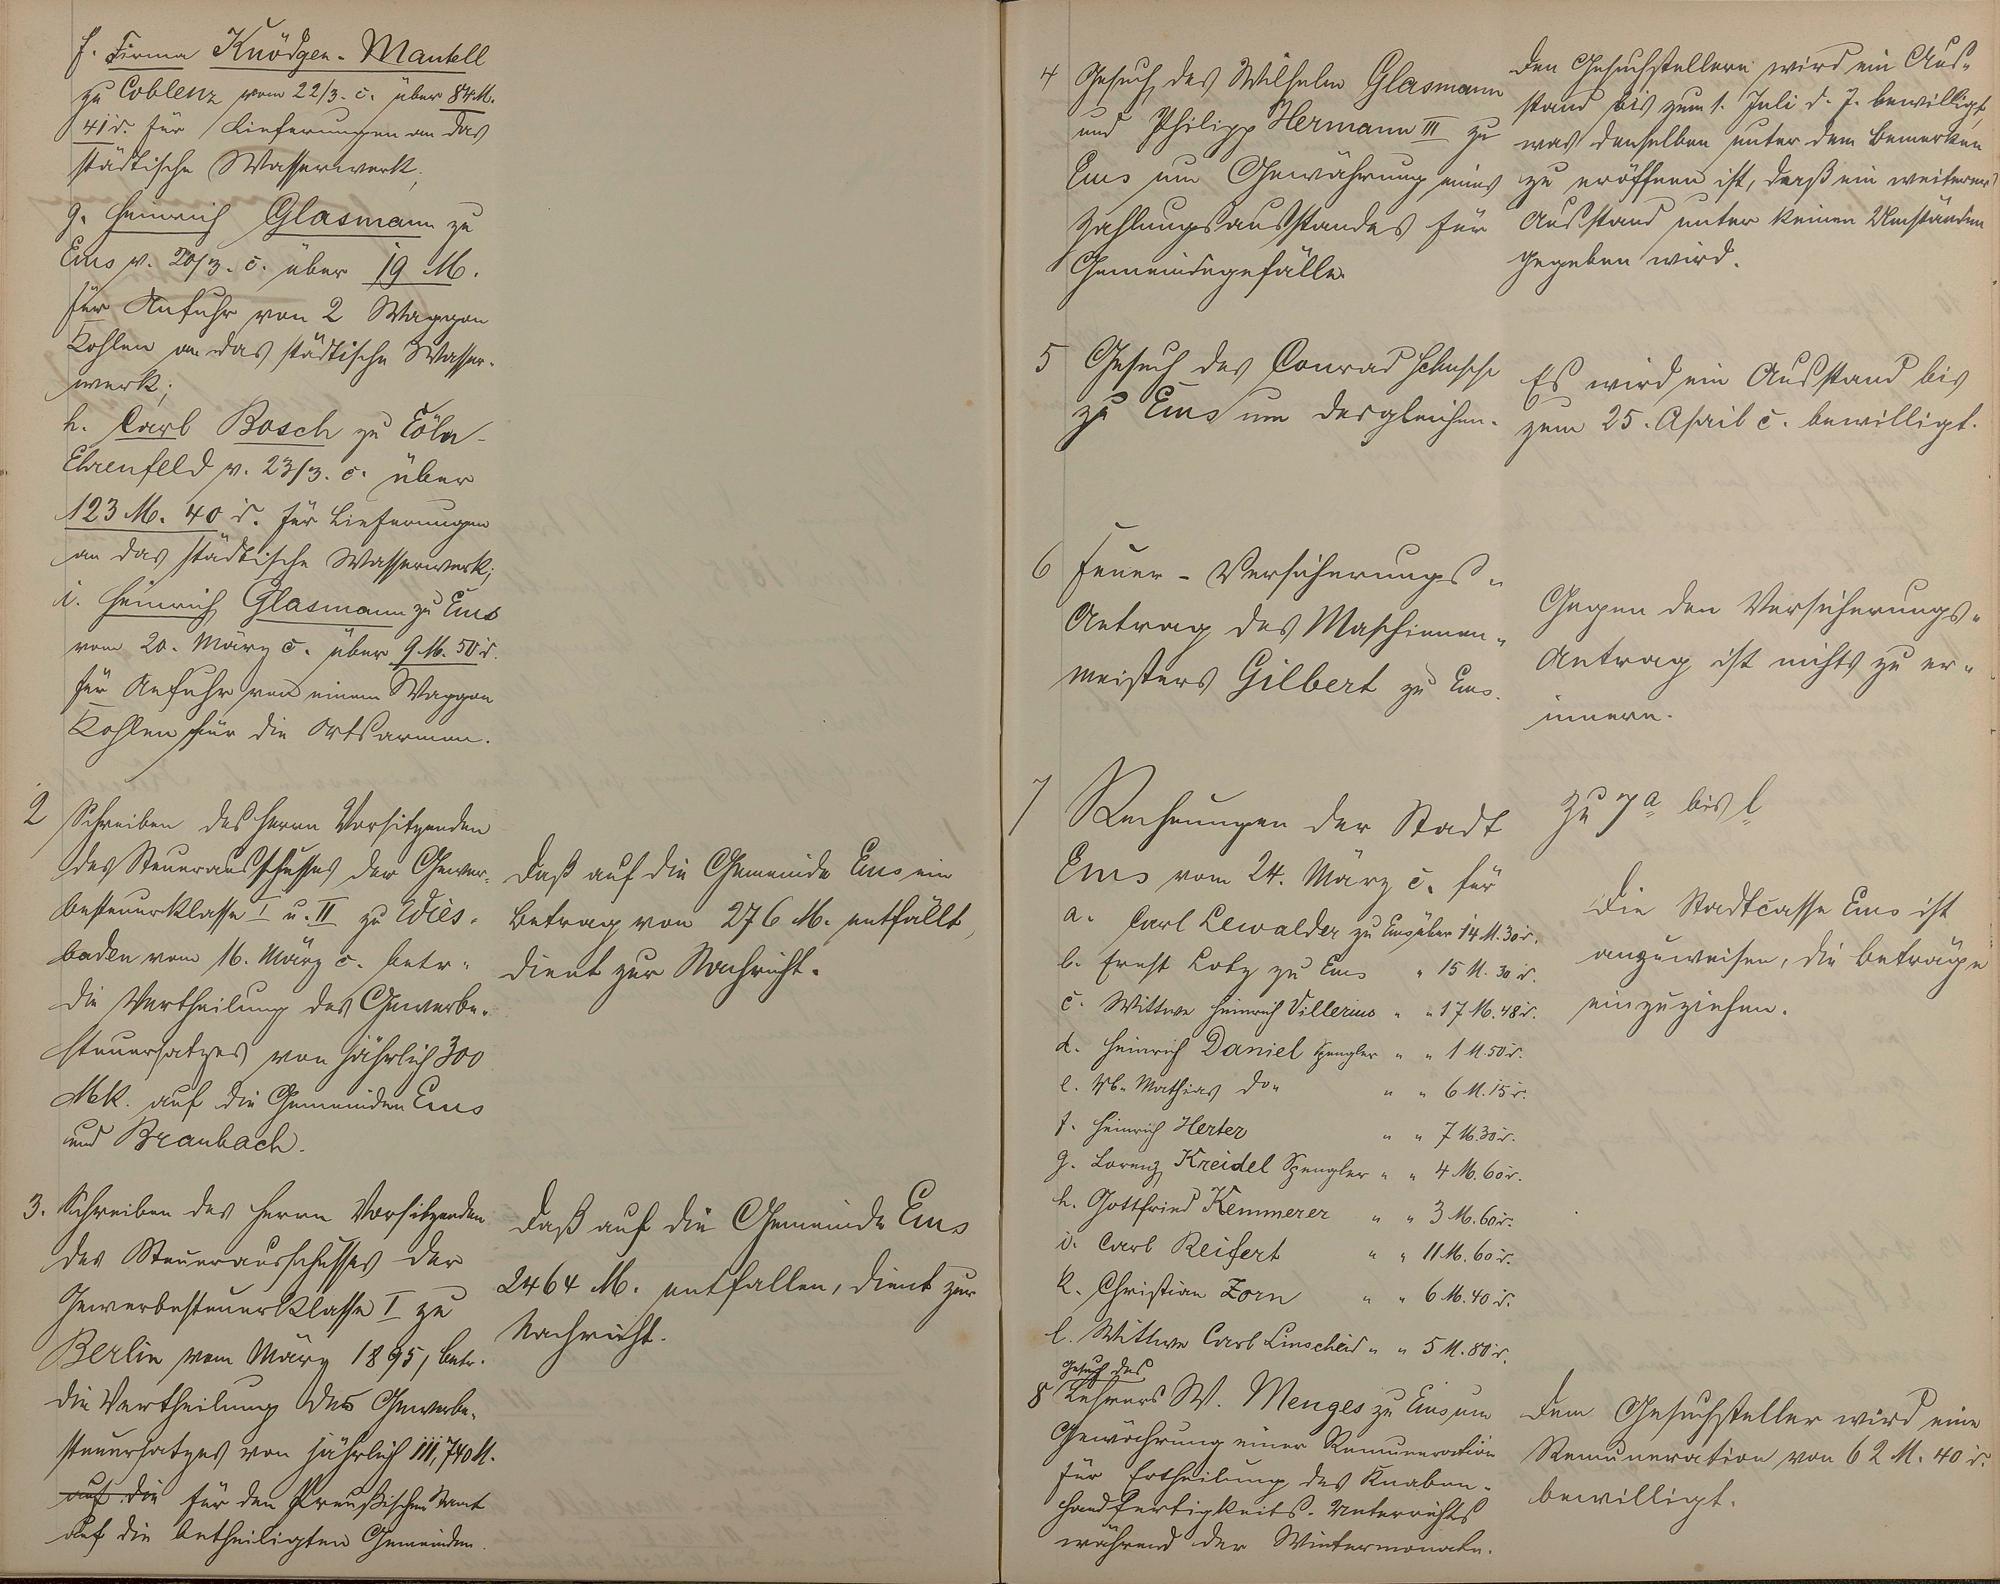 f. Firma Knödgen-Mantell
zu Coblenz vom 22/3. c. über 84 M.
41 d. für Lieferungen an das
städtische Wasserwerk,
g. Heinrich Glasmann zu
Ems v. 20/3. c. über 19 M.
für Anfuhr von 2 Waggon
Kohlen an das städtische Wasser-
werk;
h. Carl Bosch zu Cöln-
Ehrenfeld v. 23/3. c. über
123 M. 40 d. für Lieferungen
an das städtische Wasserwerk;
i. Heinrich Glasmann zu Ems
vom 20. März c. über 9 M. 50 d.
für Anfuhr von einem Waggon
Kohlen für die Ortsarmen.
2 Schreiben des Herrn Vorsitzenden
des Steuerausschusses der Gewer-
besteuerklasse I u. II zu Wies-
baden vom 16. März c. betr.
die Vertheilung des Gewerbe-
steuersatzes von jährlich 300
Mk. auf die Gemeinden Ems
und Braubach.
Daß auf die Gemeinde Ems ein
Betrag von 276 M. entfällt,
dient zur Nachricht.
3. Schreiben des Herrn Vorsitzenden
des Steuerausschusses der
Gewerbesteuerklasse I zu
Berlin vom März 1895, betr.
die Vertheilung des Gewerbe-
steuersatzes von jährlich 111,740 M.
auf die für den Preußischen Staat
auf die betheiligten Gemeinden.
Daß auf die Gemeinde Ems
2464 M. entfallen, dient zur
Nachricht.
4 Gesuch des Wilhelm Glasmann
und Philipp Hermann III zu
Ems um Gewährung eines
Zahlungsausstandes für
Gemeindegefälle.
Den Gesuchstellern wird ein Aus-
stand bis zum 1. Juli d. J. bewilligt,
was denselben unter dem Bemerken
zu eröffnen ist, daß ein weiterer
Ausstand unter keinen Umständen
gegeben wird.
5 Gesuch des Conrad
zu Ems um desgleichen.
Es wird ein Ausstand bis
zum 25. April c. bewilligt.
6 Feuer-Versicherungs-
Antrag des Maschinen-
meisters Gilbert zu Ems.
Gegen den Versicherungs-
Antrag ist nichts zu er-
innern.
7 Rechnungen der Stadt
Ems vom 24. März c. für
a. Carl Lewalder zu Ems über 14 M. 30 d.
b. Ernst Lotz zu Ems " 15 M. 30 d.
c. Wittwe Heinrich Villerius " " 17 M. 48 d.
d. Heinrich Daniel Spengler " " 1 M. 50 d.
e. Ph. Mathias do. " " 6 M. 15 d.
f. Heinrich Herter " " 7 M. 30 d.
g. Lorenz Kreidel Spengler " " 4 M. 60 d.
h. Gottfried Kemmerer " " 3 M. 60 d.
i. Carl Reifert " " 11 M. 60 d.
k. Christian Zorn " " 6 M. 40 d.
l. Wittwe Carl Linscheid " " 5 M. 80 d.
zu 7a bis l
Die Stadtcasse Ems ist
anzuweisen, die Beträge
einzuziehen.
Gesuch des
8 Lehrers W. Menges zu Ems um
Gewährung einer Remuneration
für Ertheilung des Knaben-
handfertigkeits-Unterrichts
während der Wintermonate.
Dem Gesuchsteller wird eine
Remuneration von 62 M. 40 d.
bewilligt.